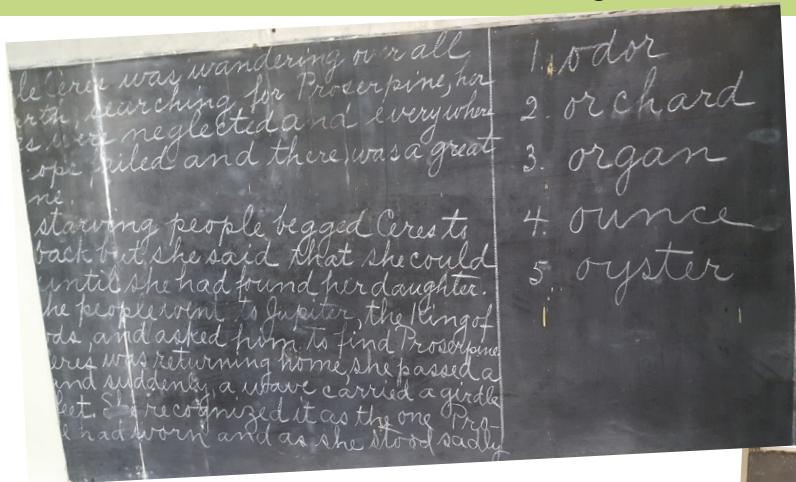 le Ceres was wandering over all
rth, searching for Proserpine, her
s were neglected and everywhere
ops failed and there was a great
ne.
starving people begged Ceres to
back but she said that she could
until she had found her daughter.
he people went to Jupiter, the King of
ods, and asked him to find Proserpine
eres was returning home, she passed a
and suddenly a wave carried a girdle
feet. She recognized it as the one Pro-
e had worn and as she stood sadly
1. odor
2. orchard
3. organ
4. ounce
5. oyster